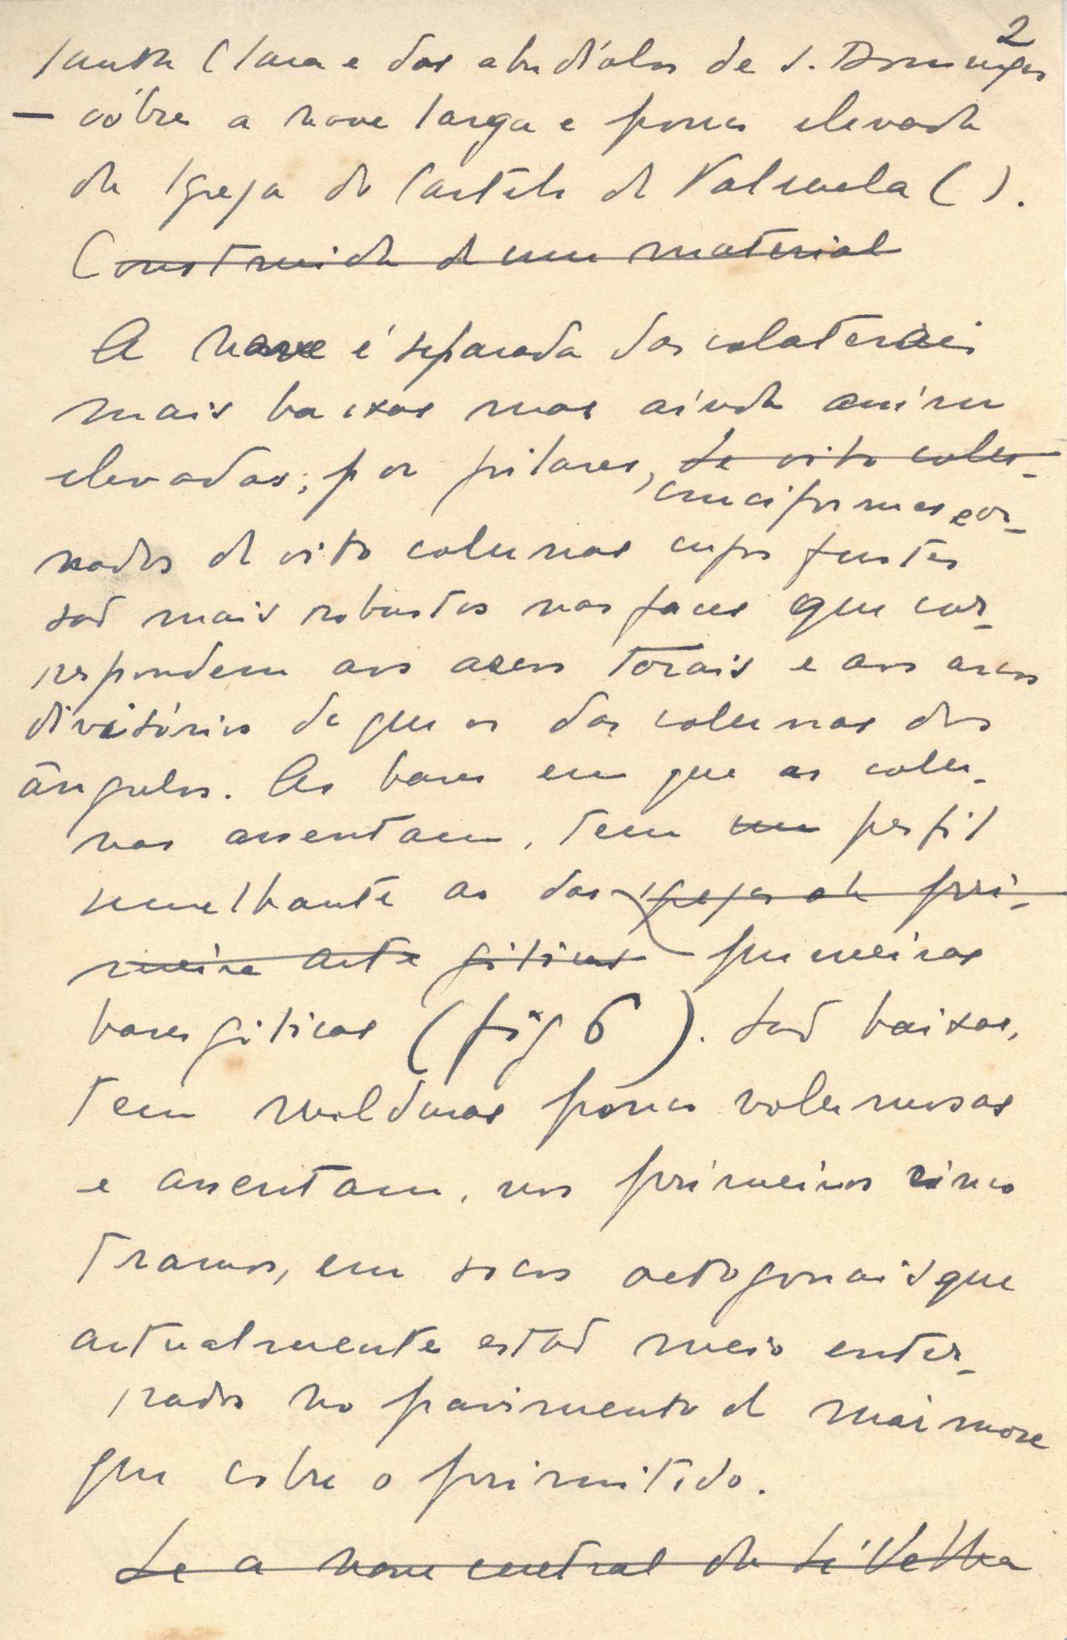 2
Santa Clara e das absidíolas de S. Domingos
— cóbre a nave larga e pouco elevada
da Igreja do Castelo de Valsuela ( ).
Construida de um material
A nave é separada das colaterais
mais baixas mas ainda assim
elevadas; por pilares, de oito colu-
cruciformes or-
nados de oito colunas cujos fustes
são mais robustos nas faces que cor-
respondem aos arcos torais e aos arcos
divisórios do que os das colunas dos
ângulos. As bases em que as colu-
nas assentam, tem um perfil
semelhante ao das igrejas da pri-
meira arte gótica primeiras
bases góticas (fig 6). São baixas,
tem molduras pouco volumosas
e assentam, nos primeiros cinco
tramos, em socos octogonais que
actualmente estão meio enter-
rados no pavimento de mármore
que cobre o primitivo.
Se a nave central da Sé Velha